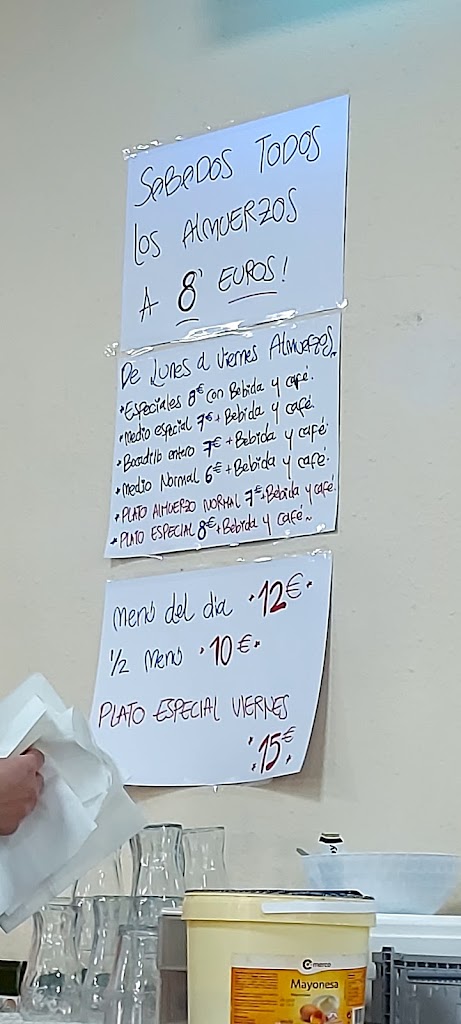 SABADOS TODOS
LOS ALMUERZOS
A 8' EUROS!
De Lunes a Viernes Almuerzos.
•Especiales 8€ con Bebida y café.
•Medio especial 7€ + Bebida y café.
•Bocadillo entero 7€ + Bebida y café.
•Medio Normal 6€ + Bebida y café.
•PLATO ALMUERZO NORMAL 7€ + Bebida y café.
•PLATO ESPECIAL 8€ + Bebida y café.
Menú del dia •12€•
1/2 Menú •10€•
PLATO ESPECIAL VIERNES
•15€•
merco
Mayonesa